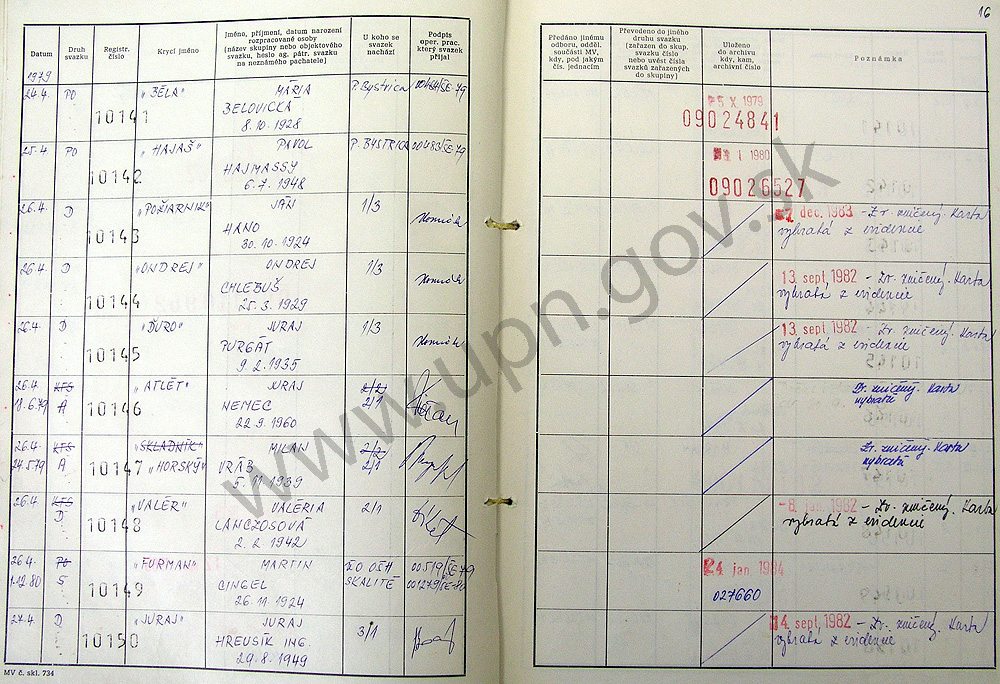 16
Datum
Druh svazku
Registr. číslo
Krycí jméno
Jméno, příjmení, datum narození
rozpracované osoby
(název skupiny nebo objektového
svazku, heslo ag. pátr. svazku
na neznámého pachatele)
U koho se
svazek
nachází
Podpis
oper. prac.
který svazek
přijal
Předáno jinému
odboru, odděl.
součásti MV,
kdy, pod jakým
čís. jednacím
Převedeno do jiného
druhu svazku
(zařazen do skup.
svazku číslo
nebo uvést čísla
svazků zařazených
do skupiny)
Uloženo
do archivu
kdy, kam,
archivní číslo
Poznámka
1979
24.4. PO 10141 "BĚLA" MÁRIA P. Bystrica
BELOVICKÁ
8.10.1928
X 1979
09024841
25.4. PO 10142 "HAJAŠ" PAVOL P. BYSTRICA
HAJMASSY
6.7.1948
1980
09026527
26.4. D 10143 "POŽIARNIK" JÁN 1/3
HANO
30.10.1924
dec. 1983 - Zv. zničený. Karta
vybratá z evidencie
26.4. D 10144 "ONDREJ" ONDREJ 1/3
CHLEBUŠ
25.3.1929
13. sept. 1982 - Zv. zničený. Karta
vybratá z evidencie
26.4. D 10145 "ĎURO" JURAJ 1/3
PURGÁT
9.2.1935
13. sept. 1982 - Zv. zničený. Karta
vybratá z evidencie
26.4. KTS 10146 "ATLÉT" JURAJ 2/2
18.6.79 A NEMEC 2/1
22.9.1960
Zv. zničený. Karta
vybratá
26.4. KTS 10147 "SKLADNÍK" MILAN 2/2
24.5.79 A "HORSKÝ" VRÁB 2/1
5.11.1939
Zv. zničený. Karta
vybratá
26.4. KTS 10148 "VALÉR" VALÉRIA 2/1
D LANCZOSOVÁ
2.2.1942
1982 - Zv. zničený. Karta
vybratá z evidencie
26.4. PO 10149 "FURMAN" MARTIN OO OCK 00519/
1.12.80 S CINGEL SKALITÉ
26.11.1924
24 jan 1984
027660
27.4. D 10150 "JURAJ" JURAJ 3/1
HREUSÍK ING.
29.8.1949
14. sept. 1982 - Zv. zničený. Karta
vybratá z evidencie
MV č. skl. 734
www.upn.gov.sk